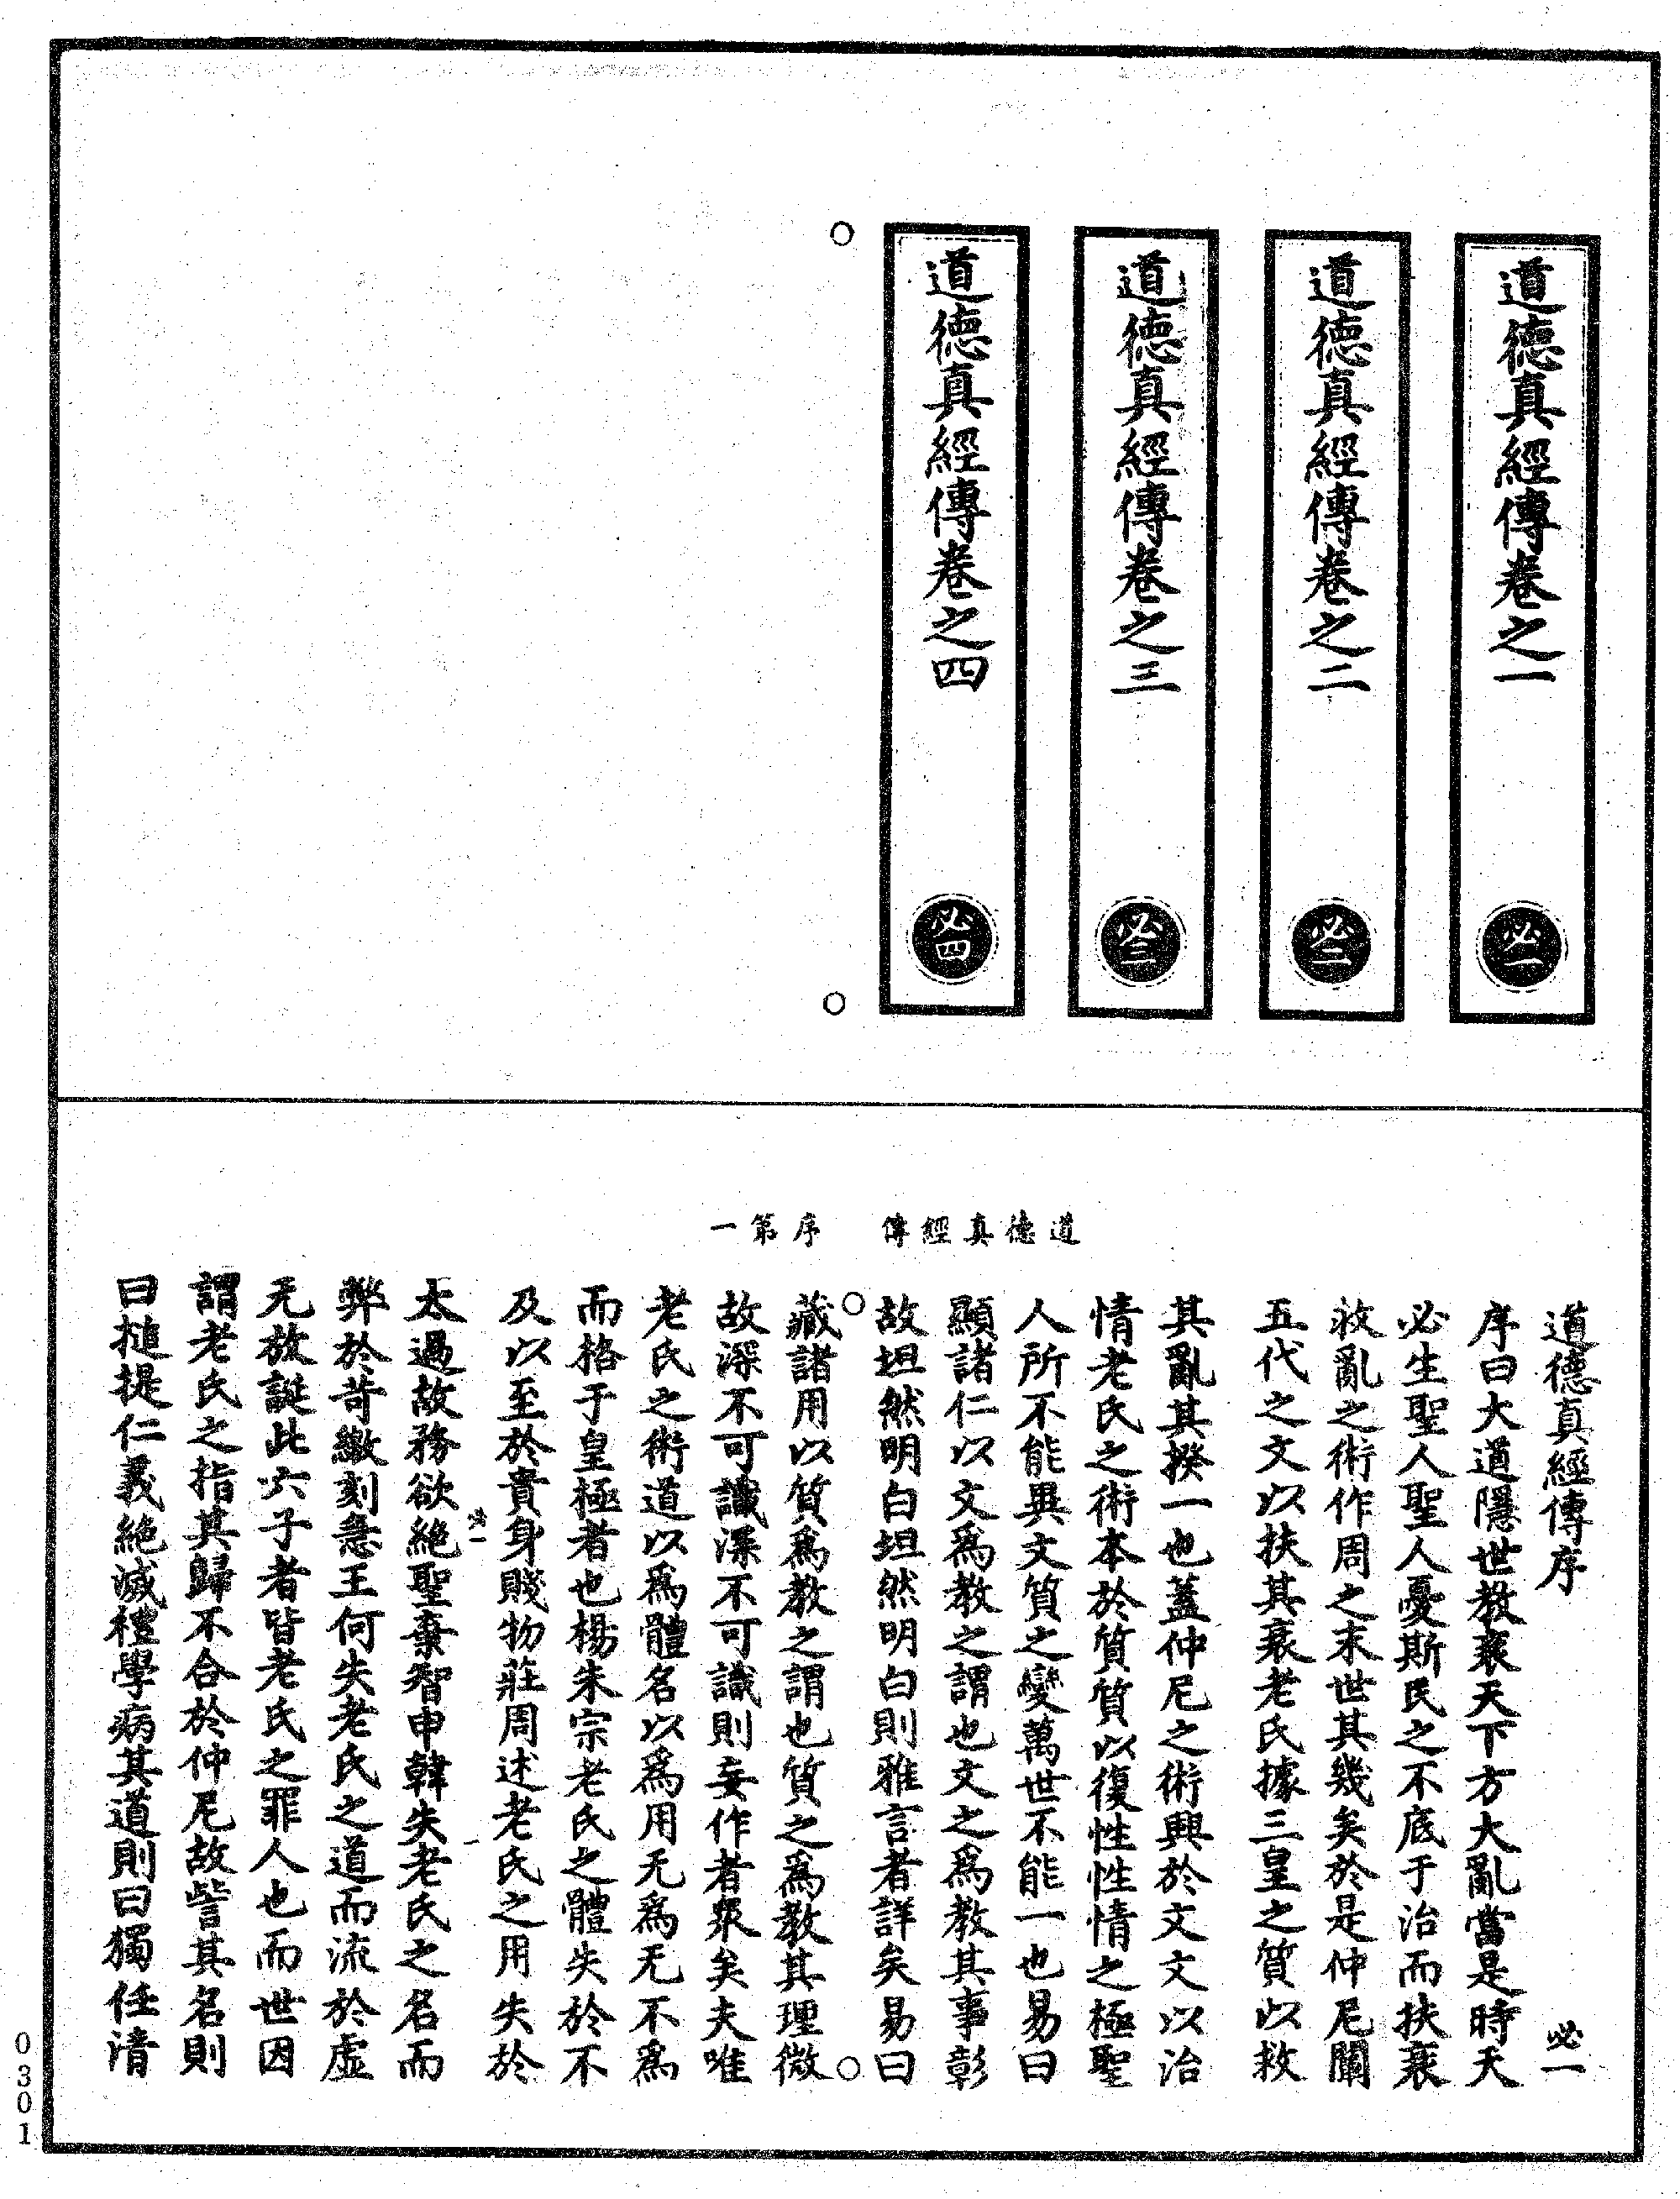 道德真經傳卷之一
必一
道德真經傳卷之二
必二
道德真經傳卷之三
必三
道德真經傳卷之四
必四
道德真經傳　序第一
道德真經傳序　必一
序曰大道隱世教衰天下方大亂當是時天
必生聖人聖人憂斯民之不底于治而扶衰
救亂之術作周之末世其幾矣於是仲尼闡
五代之文以扶其衰老氏據三皇之質以救
其亂其揆一也蓋仲尼之術興於文文以治
情老氏之術本於質質以復性性情之極聖
人所不能異文質之變萬世不能一也易曰
顯諸仁以文爲教之謂也文之爲教其事彰
故坦然明白坦然明白則雅言者詳矣易曰
藏諸用以質爲教之謂也質之爲教其理微
故深不可識深不可識則妄作者衆矣夫唯
老氏之術道以爲體名以爲用无爲无不爲
而格于皇極者也楊朱宗老氏之體失於不
及以至於貴身賤物莊周述老氏之用失於
必一
太過故務欲絕聖棄智申韓失老氏之名而
弊於苛繳刻急王何失老氏之道而流於虛
无放誕此六子者皆老氏之罪人也而世因
謂老氏之指其歸不合於仲尼故訾其名則
曰搥提仁義絕滅禮學病其道則曰獨任清
0301